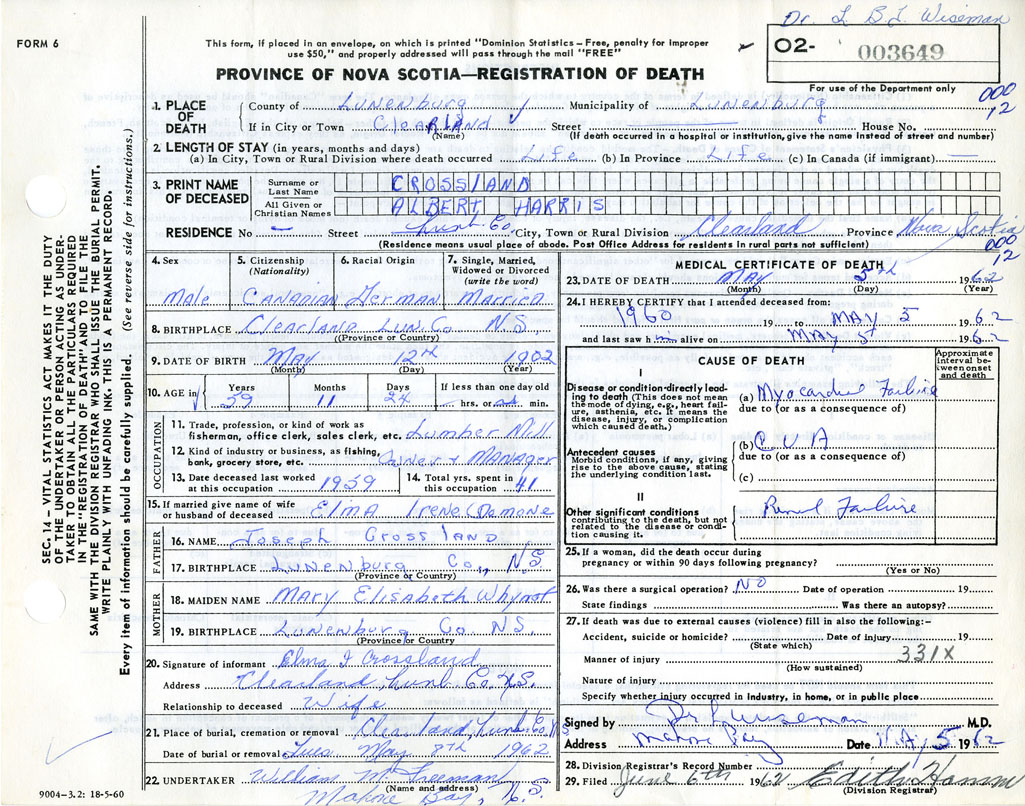 Dr. L B L Wiseman
FORM 6
This form, if placed in an envelope, on which is printed "Dominion Statistics – Free, penalty for improper
use $50," and properly addressed will pass through the mail "FREE"
02- 003649
PROVINCE OF NOVA SCOTIA—REGISTRATION OF DEATH
For use of the Department only
000
12
1. PLACE OF DEATH
County of Lunenburg Municipality of Lunenburg
If in City or Town Clearland Street House No.
(Name) (If death occurred in a hospital or institution, give the name instead of street and number)
2. LENGTH OF STAY (in years, months and days)
(a) In City, Town or Rural Division where death occurred Life (b) In Province Life (c) In Canada (if immigrant) —
3. PRINT NAME OF DECEASED
Surname or Last Name CROSSLAND
All Given or Christian Names ALBERT HARRIS
RESIDENCE No — Street Lunb. Co. City, Town or Rural Division Clearland Province Nova Scotia
(Residence means usual place of abode. Post Office Address for residents in rural parts not sufficient)
000
12
SEC. 14 – VITAL STATISTICS ACT MAKES IT THE DUTY
OF THE UNDERTAKER OR PERSON ACTING AS UNDER-
TAKER TO OBTAIN ALL THE PARTICULARS REQUIRED
IN THE "REGISTRATION OF DEATH" AND TO FILE THE
SAME WITH THE DIVISION REGISTRAR WHO SHALL ISSUE THE BURIAL PERMIT.
WRITE PLAINLY WITH UNFADING INK. THIS IS A PERMANENT RECORD.
Every item of information should be carefully supplied. (See reverse side for instructions.)
4. Sex Male
5. Citizenship (Nationality) Canadian
6. Racial Origin German
7. Single, Married, Widowed or Divorced (write the word) Married
8. BIRTHPLACE Clearland Lun. Co. N.S.
(Province or Country)
9. DATE OF BIRTH May 12th 1902
(Month) (Day) (Year)
10. AGE in Years 59 Months 11 Days 24 If less than one day old hrs. or min.
OCCUPATION
11. Trade, profession, or kind of work as
fisherman, office clerk, sales clerk, etc. Lumber Mill
12. Kind of industry or business, as fishing,
bank, grocery store, etc. Owner + Manager
13. Date deceased last worked
at this occupation 1959
14. Total yrs. spent in
this occupation 41
15. If married give name of wife
or husband of deceased Elma Irene (Demone
FATHER
16. NAME Joseph Crossland
17. BIRTHPLACE Lunenburg Co., N.S.
(Province or Country)
MOTHER
18. MAIDEN NAME Mary Elisabeth Whynot
19. BIRTHPLACE Lunenburg Co. N.S.
(Province or Country)
20. Signature of informant Elma I Crossland
Address Clearland, Lunb. Co. N.S.
Relationship to deceased Wife
21. Place of burial, cremation or removal Clearland, Lunb. Co. N.S
Date of burial or removal Tues May 8th 1962
22. UNDERTAKER William M Freeman
(Name and address)
Mahone Bay, N.S.
9004–3.2: 18-5-60
MEDICAL CERTIFICATE OF DEATH
23. DATE OF DEATH May 5th 1962
(Month) (Day) (Year)
24. I HEREBY CERTIFY that I attended deceased from:
1960 19 to MAY 5 1962
and last saw him alive on May 5 1962
CAUSE OF DEATH
Approximate interval between onset and death
I
Disease or condition directly lead-
ing to death (This does not mean
the mode of dying, e.g., heart failure,
asthenia, etc. It means the
disease, injury, or complication
which caused death.)
(a) Myocardial Failure
due to (or as a consequence of)
(b) C V A
due to (or as a consequence of)
Antecedent causes
Morbid conditions, if any, giving
rise to the above cause, stating
the underlying condition last.
(c)
II
Other significant conditions
contributing to the death, but not
related to the disease or condi-
tion causing it.
Renal Failure
25. If a woman, did the death occur during
pregnancy or within 90 days following pregnancy?
(Yes or No)
26. Was there a surgical operation? No Date of operation 19
State findings Was there an autopsy?
27. If death was due to external causes (violence) fill in also the following:–
Accident, suicide or homicide? Date of injury 19
(State which)
Manner of injury 331X
(How sustained)
Nature of injury
Specify whether injury occurred in industry, in home, or in public place
Signed by Dr L Wiseman M.D.
Address Mahone Bay Date MAY 5 1962
28. Division Registrar's Record Number
29. Filed June 6th 1962 Edith Hamm
(Division Registrar)